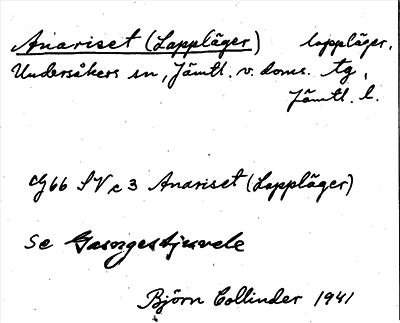 Anariset (Lappläger) lappläger.
Undersåkers sn, Jämtl. v. doms. tg,
Jämtl. l.
G66 SV c 3 Anariset (Lappläger)
Se Gasngestjuvele
Björn Collinder 1941